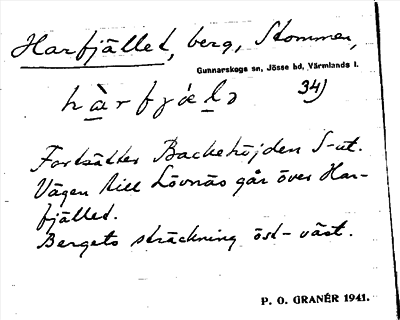 Harfjället, berg, Stommen,
Gunnarskogs sn, Jösse hd, Värmlands l.
hàrfjælə 34)
Fortsätter Backehöjden S-ut.
Vägen till Lövnäs går över Har-
fjället.
Bergets sträckning öst-väst.
P. O. GRANÉR 1941.